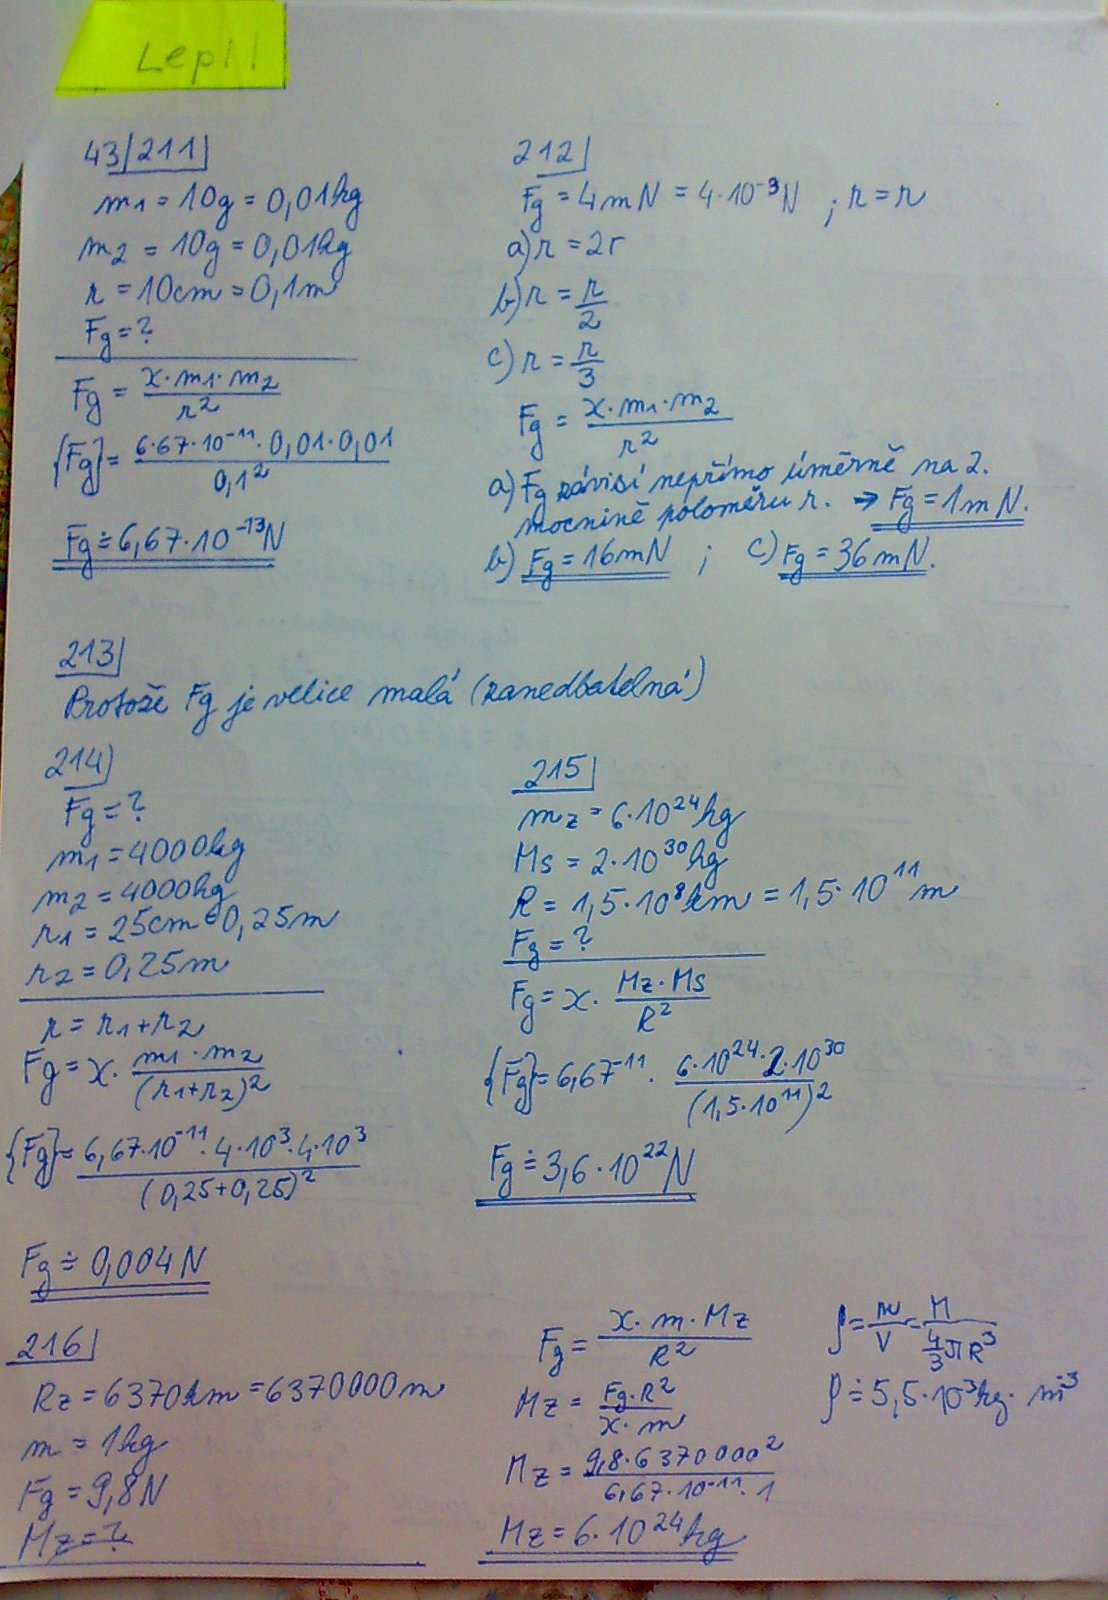 Lepil
43/211
m₁ = 10g = 0,01kg
m₂ = 10g = 0,01kg
r = 10cm = 0,1m
Fg = ?
Fg = x·m₁·m₂ / r²
{Fg} = 6·67·10⁻¹¹·0,01·0,01 / 0,1²
Fg ≐ 6,67·10⁻¹³N
212
Fg = 4mN = 4·10⁻³N ; r = r
a) r = 2r
b) r = r/2
c) r = r/3
Fg = x·m₁·m₂ / r²
a) Fg závisí nepřímo úměrně na 2.
mocnině poloměru r. → Fg = 1mN.
b) Fg = 16mN ; c) Fg = 36mN.
213
Protože Fg je velice malá (zanedbatelná)
214
Fg = ?
m₁ = 4000kg
m₂ = 4000kg
r₁ = 25cm = 0,25m
r₂ = 0,25m
r = r₁+r₂
Fg = x · m₁·m₂ / (r₁+r₂)²
{Fg} = 6,67·10⁻¹¹·4·10³·4·10³ / (0,25+0,25)²
Fg ≐ 0,004N
215
mz = 6·10²⁴kg
Ms = 2·10³⁰kg
R = 1,5·10⁸km = 1,5·10¹¹m
Fg = ?
Fg = x · Mz·Ms / R²
{Fg} = 6,67⁻¹¹ · 6·10²⁴·2·10³⁰ / (1,5·10¹¹)²
Fg ≐ 3,6·10²²N
216
Rz = 6370km = 6370000m
m = 1kg
Fg = 9,8N
Mz = ?
Fg = x·m·Mz / R²
Mz = Fg·R² / x·m
Mz = 9,8·6370000² / 6,67·10⁻¹¹·1
Mz = 6·10²⁴kg
ρ = m/V = M / 4/3 πR³
ρ ≐ 5,5·10³kg·m⁻³